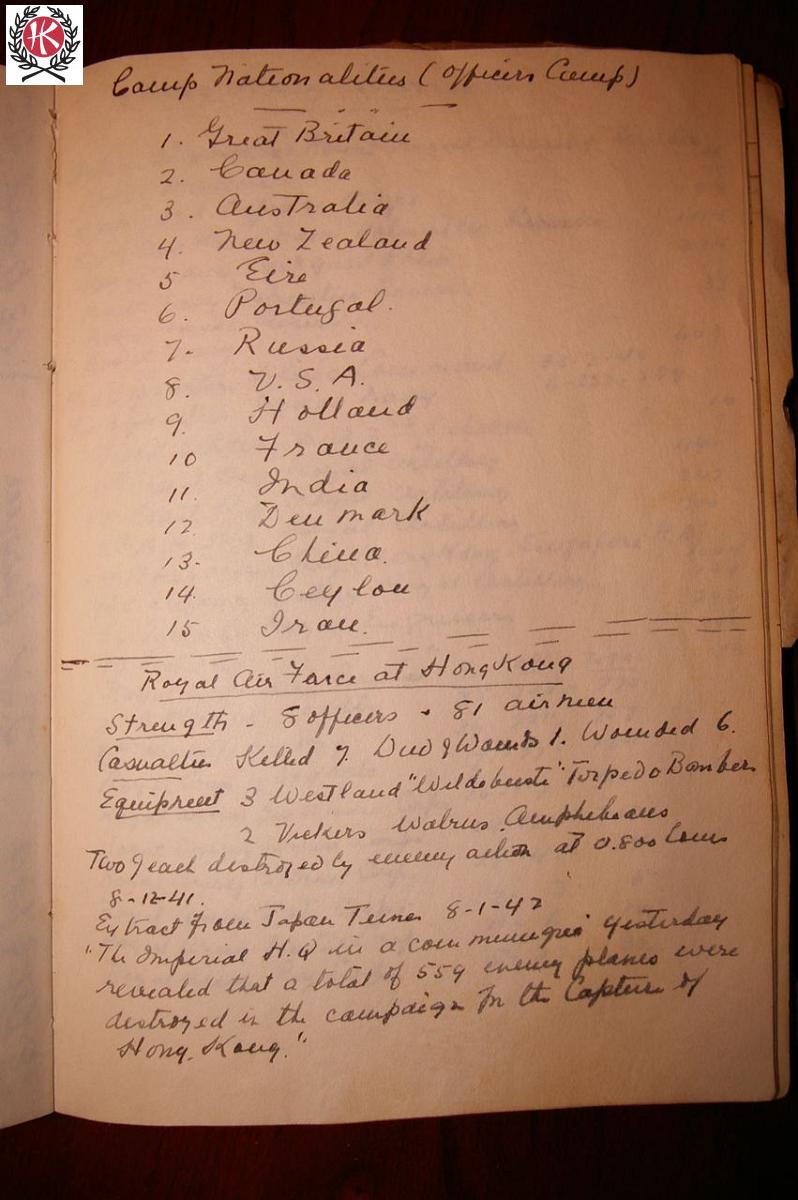 HK
Camp Nationalities (Officers Camp)
1. Great Britain
2. Canada
3. Australia
4. New Zealand
5 Eire
6. Portugal.
7. Russia
8. U.S.A.
9. Holland
10 France
11. India
12 Denmark
13. China.
14. Ceylon
15 Iran.
Royal Air Force at Hong Kong
Strength - 8 officers + 81 airmen
Casualties Killed 7. Died of Wounds 1. Wounded 6.
Equipment 3 Westland "Wildebeste" Torpedo Bombers
2 Vickers Walrus Amphibians
Two of each destroyed by enemy action at 0.800 hours
8-12-41.
Extract from Japan Times 8-1-42
"The Imperial H.Q in a communique yesterday
revealed that a total of 559 enemy planes were
destroyed in the campaign for the Capture of
Hong. Kong."